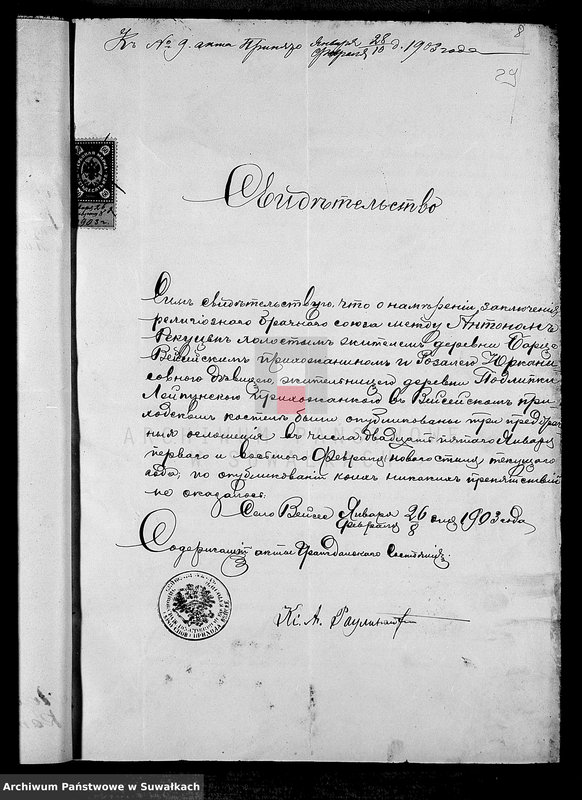 Къ № 9. акта Принято Января 28 / Февраля 10 д. 1903 года
8
29
1903 г.
Свидѣтельство
Симъ свидѣтельствую, что о намѣреніи заключенія
религіознаго брачнаго союза между Антономъ
холостымъ жителемъ деревни
Вейсейскимъ прихожаниномъ и Розаліею
дѣвицею, жительницею деревни Подлипки
Лейпунскою прихожанкою въ Вейсейскомъ при-
ходскомъ костелѣ были опубликованы три предбрач-
ныя оглашенія въ числа: двадцать пятаго Января
перваго и восьмаго Февраля (новаго стиля) текущаго
года; по опубликованіи коихъ никакихъ препятствій
не оказалось.
Село Вейсее Января 26 / Февраля 8 дня 1903 года
Содержащій акты Гражданскаго Состоянія:
Кс. А.
ARCHIWUM PAŃSTWOWE
W SUWAŁKACH
Archiwum Państwowe w Suwałkach